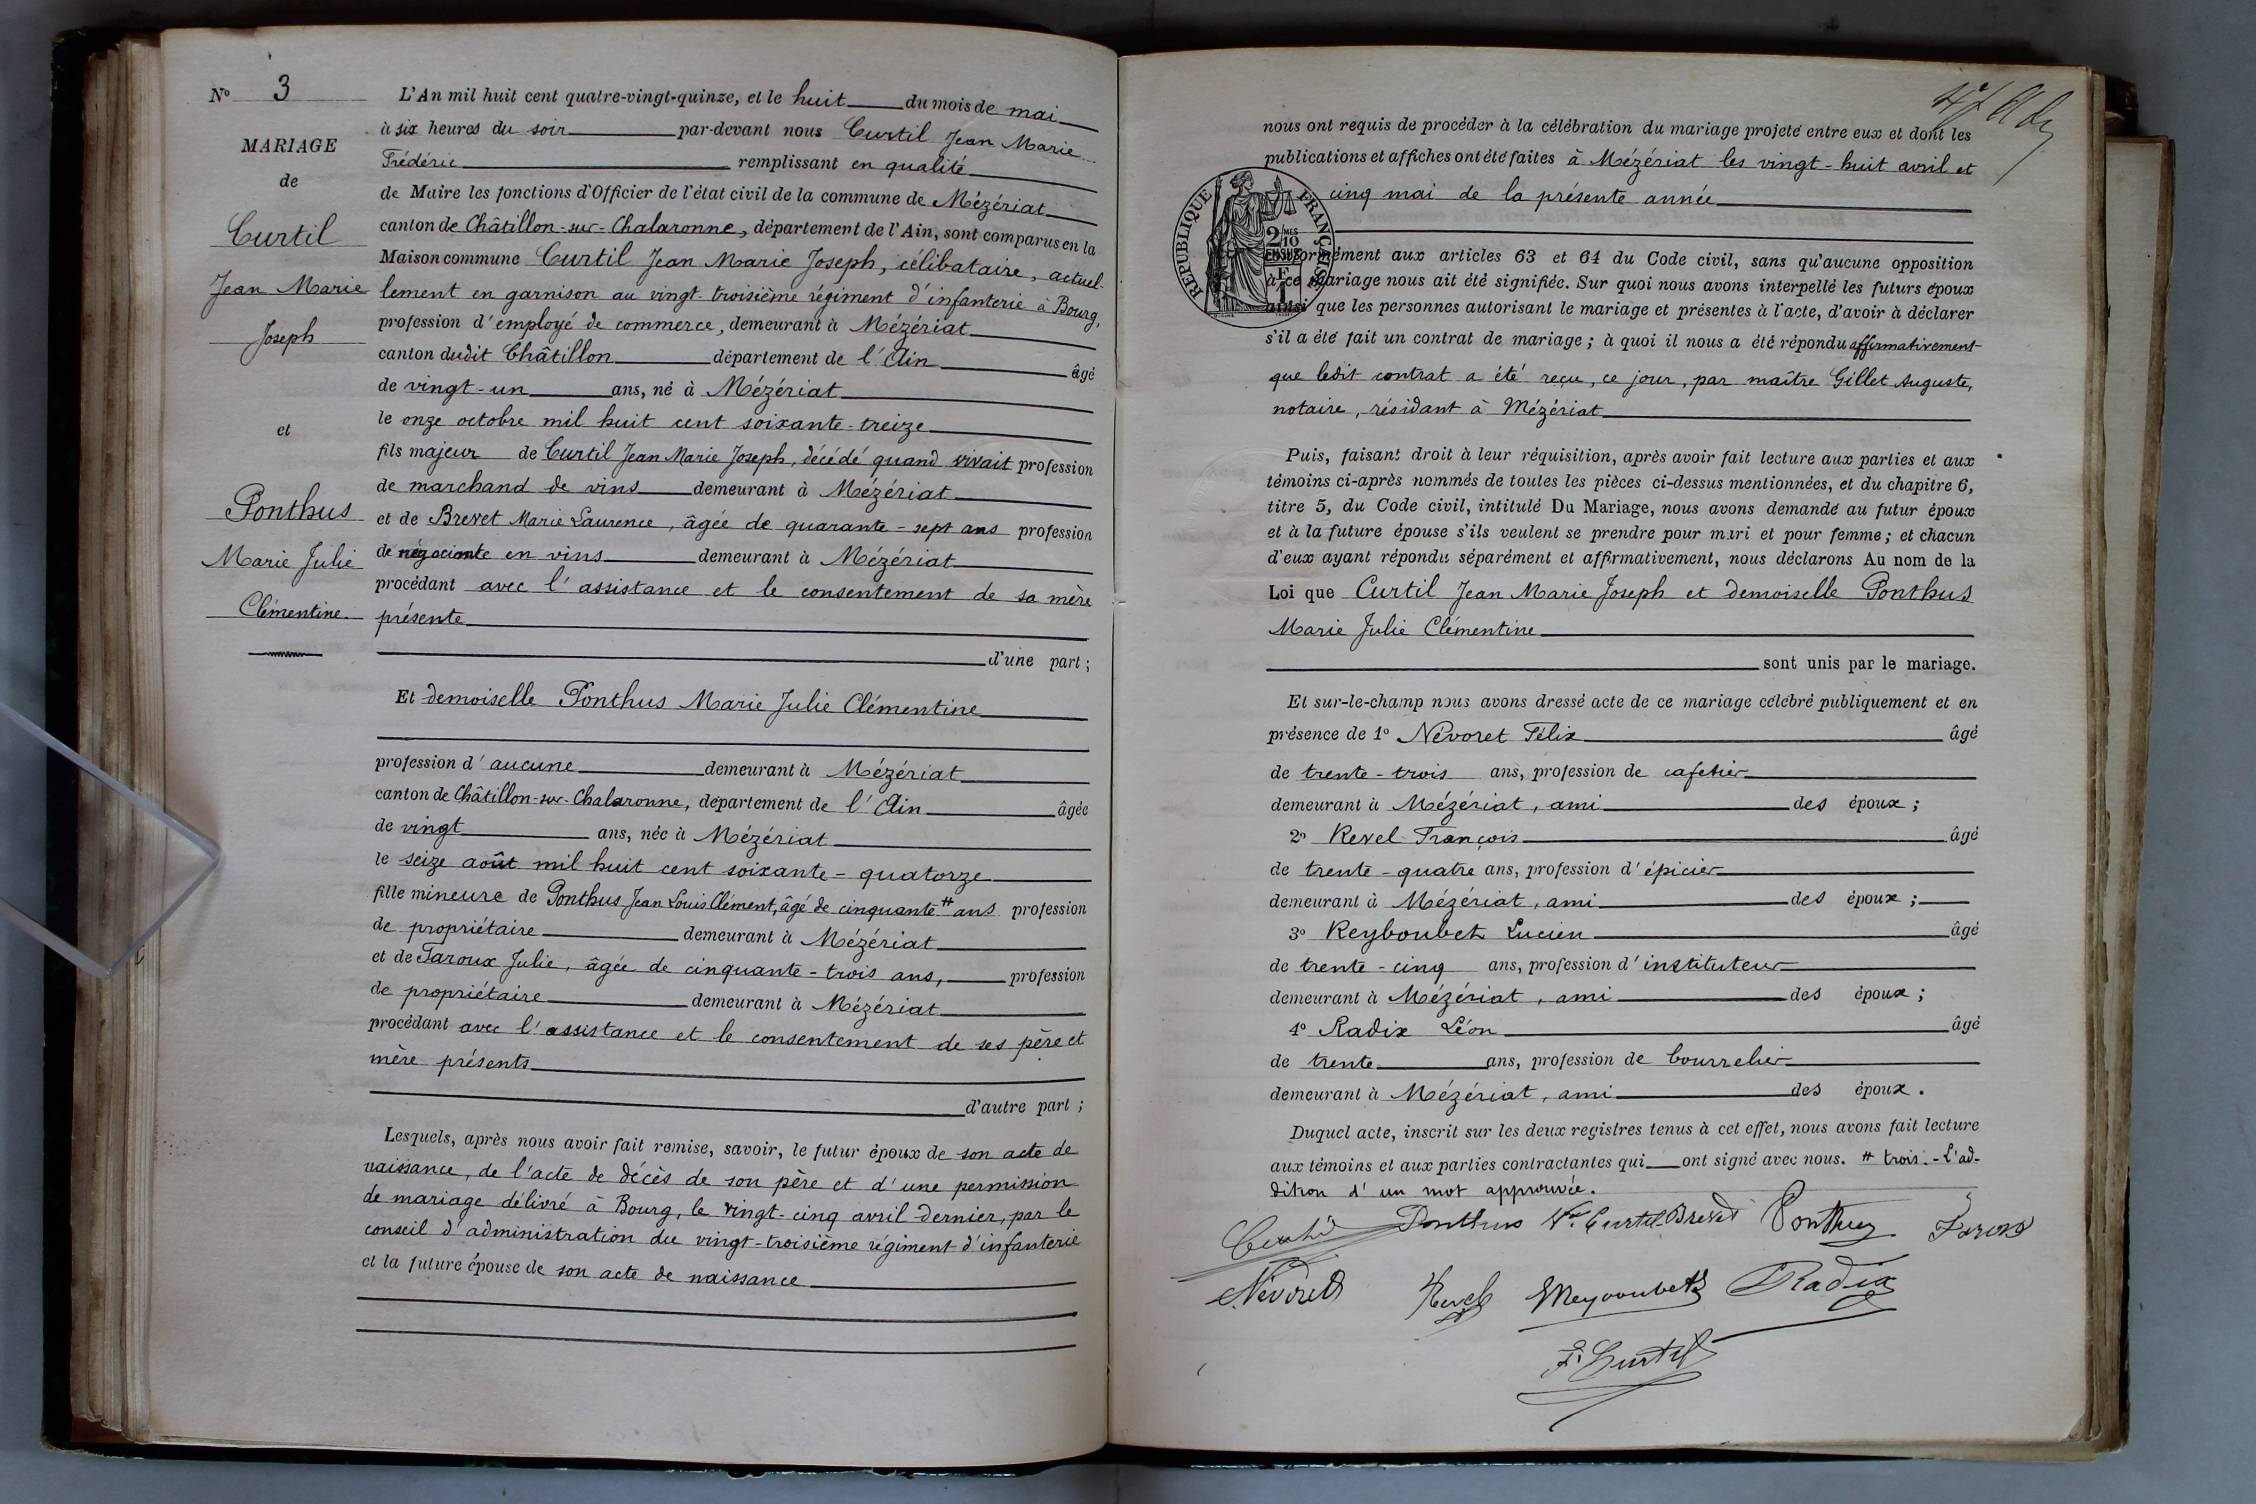 N° 3
MARIAGE
de
Curtil
Jean Marie
Joseph
et
Ponthus
Marie Julie
Clémentine.
L'An mil huit cent quatre-vingt-quinze, et le huit du mois de mai
à six heures du soir par-devant nous Curtil Jean Marie
Frédéric remplissant en qualité
de Maire les fonctions d'Officier de l'état civil de la commune de Mézériat
canton de Châtillon-sur-Chalaronne, département de l'Ain, sont comparus en la
Maison commune Curtil Jean Marie Joseph, célibataire, actuel-
lement en garnison au vingt-troisième régiment d'infanterie à Bourg,
profession d'employé de commerce, demeurant à Mézériat
canton dudit Châtillon département de l'Ain âgé
de vingt-un ans, né à Mézériat
le onze octobre mil huit cent soixante-treize
fils majeur de Curtil Jean Marie Joseph, décédé quand vivait profession
de marchand de vins demeurant à Mézériat
et de Brevet Marie Laurence, âgée de quarante-sept ans profession
de négociante en vins demeurant à Mézériat
procédant avec l'assistance et le consentement de sa mère
présente
d'une part;
Et demoiselle Ponthus Marie Julie Clémentine
profession d'aucune demeurant à Mézériat
canton de Châtillon-sur-Chalaronne, département de l'Ain âgée
de vingt ans, née à Mézériat
le seize août mil huit cent soixante-quatorze
fille mineure de Ponthus Jean Louis Clément, âgé de cinquante # ans profession
de propriétaire demeurant à Mézériat
et de Faroux Julie, âgée de cinquante-trois ans, profession
de propriétaire demeurant à Mézériat
procédant avec l'assistance et le consentement de ses père et
mère présents
d'autre part;
Lesquels, après nous avoir fait remise, savoir, le futur époux de son acte de
naissance, de l'acte de décès de son père et d'une permission
de mariage délivré à Bourg, le vingt-cinq avril dernier, par le
conseil d'administration du vingt-troisième régiment d'infanterie
et la future épouse de son acte de naissance
nous ont requis de procéder à la célébration du mariage projeté entre eux et dont les
publications et affiches ont été faites à Mézériat les vingt-huit avril et
cinq mai de la présente année
RÉPUBLIQUE FRANÇAISE
2 MES
10
EN SUS
conformément aux articles 63 et 64 du Code civil, sans qu'aucune opposition
à ce mariage nous ait été signifiée. Sur quoi nous avons interpellé les futurs époux
ainsi que les personnes autorisant le mariage et présentes à l'acte, d'avoir à déclarer
s'il a été fait un contrat de mariage; à quoi il nous a été répondu affirmativement
que ledit contrat a été reçu, ce jour, par maître Gillet Auguste,
notaire, résidant à Mézériat
Puis, faisant droit à leur réquisition, après avoir fait lecture aux parties et aux
témoins ci-après nommés de toutes les pièces ci-dessus mentionnées, et du chapitre 6,
titre 5, du Code civil, intitulé Du Mariage, nous avons demandé au futur époux
et à la future épouse s'ils veulent se prendre pour mari et pour femme; et chacun
d'eux ayant répondu séparément et affirmativement, nous déclarons Au nom de la
Loi que Curtil Jean Marie Joseph et demoiselle Ponthus
Marie Julie Clémentine
sont unis par le mariage.
Et sur-le-champ nous avons dressé acte de ce mariage célébré publiquement et en
présence de 1° Névoret Félix âgé
de trente-trois ans, profession de cafetier
demeurant à Mézériat, ami des époux;
2° Revel François âgé
de trente-quatre ans, profession d'épicier
demeurant à Mézériat, ami des époux;
3° Reyboubet Lucien âgé
de trente-cinq ans, profession d'instituteur
demeurant à Mézériat, ami des époux;
4° Radix Léon âgé
de trente ans, profession de bourrelier
demeurant à Mézériat, ami des époux.
Duquel acte, inscrit sur les deux registres tenus à cet effet, nous avons fait lecture
aux témoins et aux parties contractantes qui ont signé avec nous. # trois. - L'ad-
dition d'un mot approuvée.
Curtil Ponthus Ve. Curtil Brevet Ponthus Faroux
Névoret Revel Radix
F. Curtil